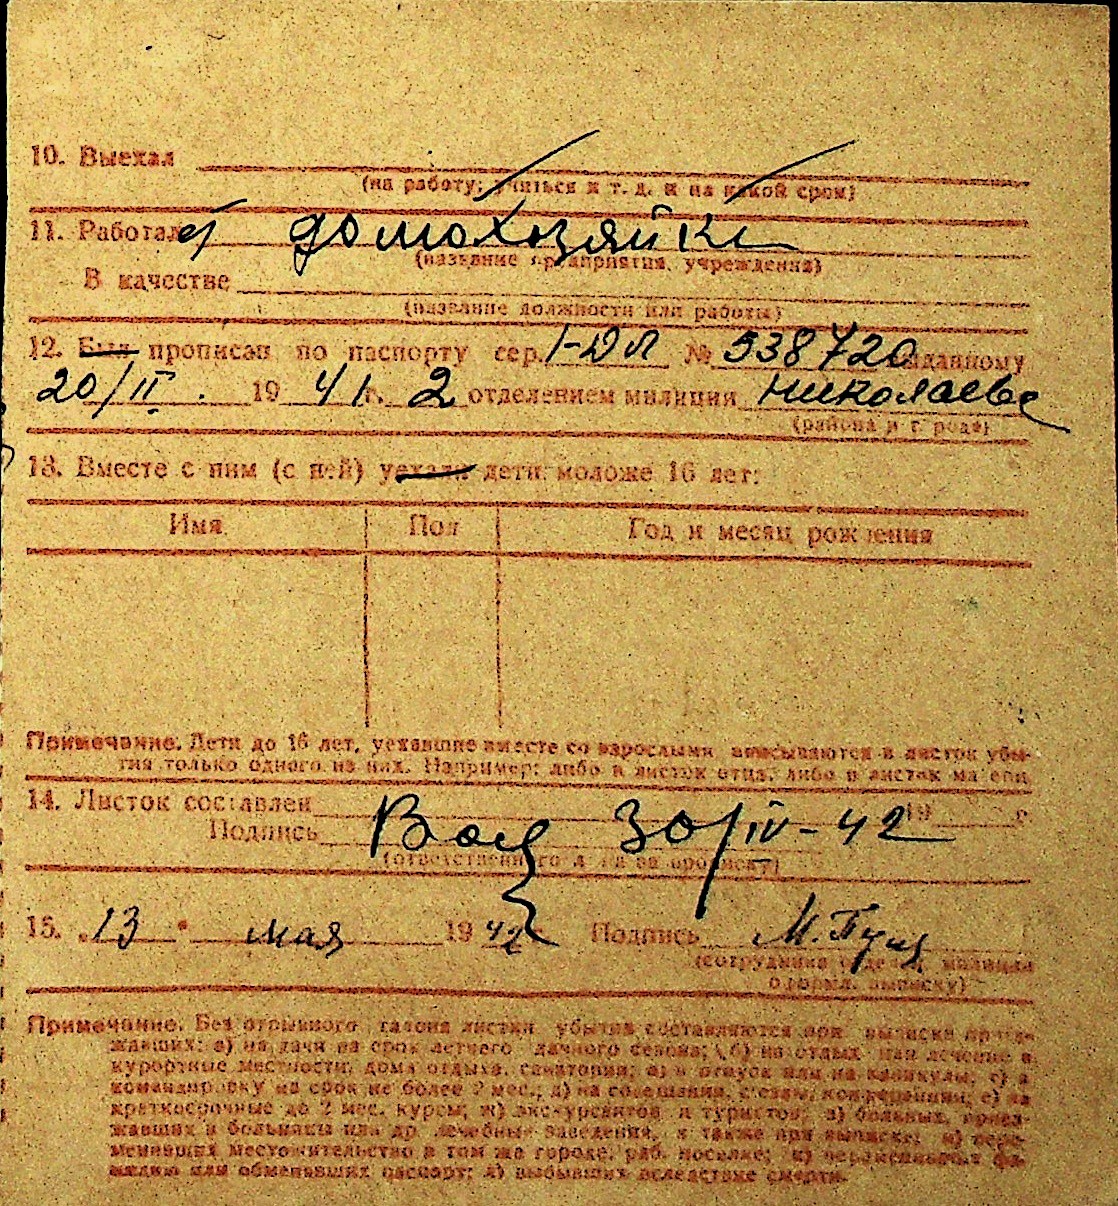 10. Выехал
(на работу; учиться и т. д. и на какой срок)
11. Работает домохозяйка
(название предприятия, учреждения)
В качестве
(название должности или работы)
12. Был прописан по паспорту сер. I-ДЛ № 538720 выданному
20/II. 1941 г. 2 отделением милиции Николаева
(района и города)
13. Вместе с ним (с ней) уехали дети моложе 16 лет:
Имя Пол Год и месяц рождения
Примечание. Дети до 16 лет, уехавшие вместе со взрослыми вписываются в листок убы-
тия только одного из них. Например: либо в листок отца, либо в листок матери.
14. Листок составлен 19 г.
Подпись 30/IV-42
(ответственного за прописку)
15. „13" мая 1942 г. Подпись
(сотрудника отдел. милиции
оформл. выписку)
Примечание. Без отрывного талона листки убытия составляются при выписке приез-
жавших: а) на дачи на срок летнего дачного сезона; б) на отдых или лечение в
курортные местности, дома отдыха, санатории; в) в отпуск или на каникулы; г) в
командировку на срок не более 2 мес.; д) на совещания, съезды, конференции; е) на
краткосрочные до 2 мес. курсы; ж) экскурсантов и туристов; з) больных, приез-
жавших в больницы или др. лечебные заведения, а также при выписке: и) пере-
менивших местожительство в том же городе, раб. поселке; к) переменивших фа-
милию или обменявших паспорт; л) выбывших вследствие смерти.